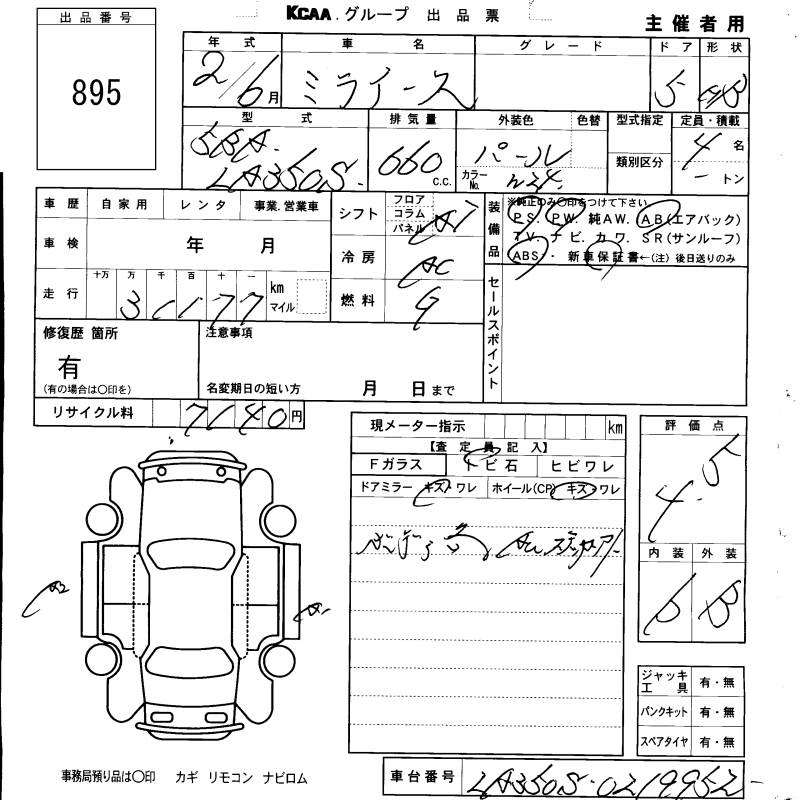 KCAA グループ 出品票
主催者用
出品番号
895
年式 車名 グレード ドア 形状
2/6月 ミライース 5 HB
型式 排気量 外装色 色替 型式指定 定員・積載
5BA- LA350S 660 C.C. パール カラーNo. W24 類別区分 4名 ートン
車歴 自家用 レンタ 事業.営業車
シフト フロア コラム パネル AT
装備品 ※純正のみ〇印をつけて下さい
P.S. P.W. 純AW. AB(エアバック)
T.V. ナビ. カワ. SR(サンルーフ)
ABS・・新車保証書←(注)後日送りのみ
車検 年 月
冷房 AC
走行 十万 万 千 百 十 一 km マイル
燃料 G
セールスポイント
修復歴 箇所
有
(有の場合は〇印を)
注意事項
名変期日の短い方 月 日まで
リサイクル料 7140円
現メーター指示 km
【査定員記入】
Fガラス トビ石 ヒビワレ
ドアミラー キズ・ワレ ホイール(CP) キズ・ワレ
評価点
4.5
内装 外装
b B
A2
A1
ジャッキ工具 有・無
パンクキット 有・無
スペアタイヤ 有・無
事務局預り品は〇印 カギ リモコン ナビロム
車台番号 LA350S-0219952